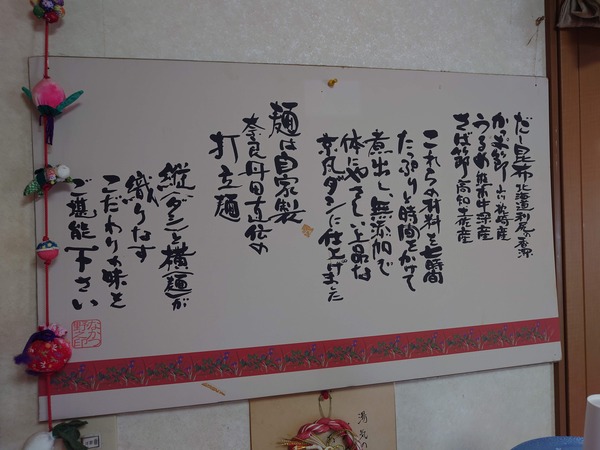 だし昆布 北海道利尻の香深
かつお節 山川 枕崎産
うるめ 熊本牛深産
さば節 高知土佐産
これらの材料を七時間
たっぷりと時間をかけて
煮出し、無添加で
体にやさしい上品な
京風ダシに仕上げました
麺は自家製
奈良丹田直伝の
打立麺
縦ダシと横麺が
織りなす
こだわりの味を
ご堪能下さい